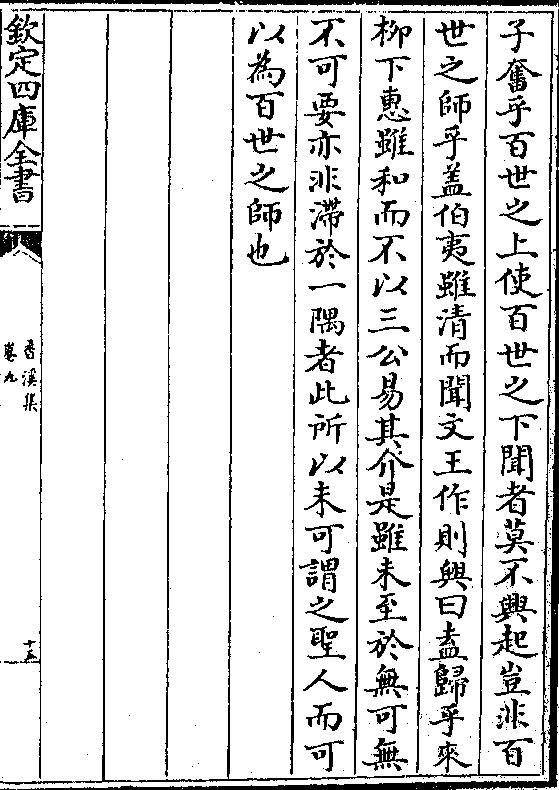 子奮乎百世之上使百世之下聞者莫不興起豈非百
世之師乎盖伯夷雖清而聞文王作則興曰盍歸乎來
栁下惠雖和而不以三公易其介是雖未至於無可無
不可要亦非滯於一隅者此所以未可謂之聖人而可
以為百世之師也
欽定四庫全書
香溪集
卷九
十五